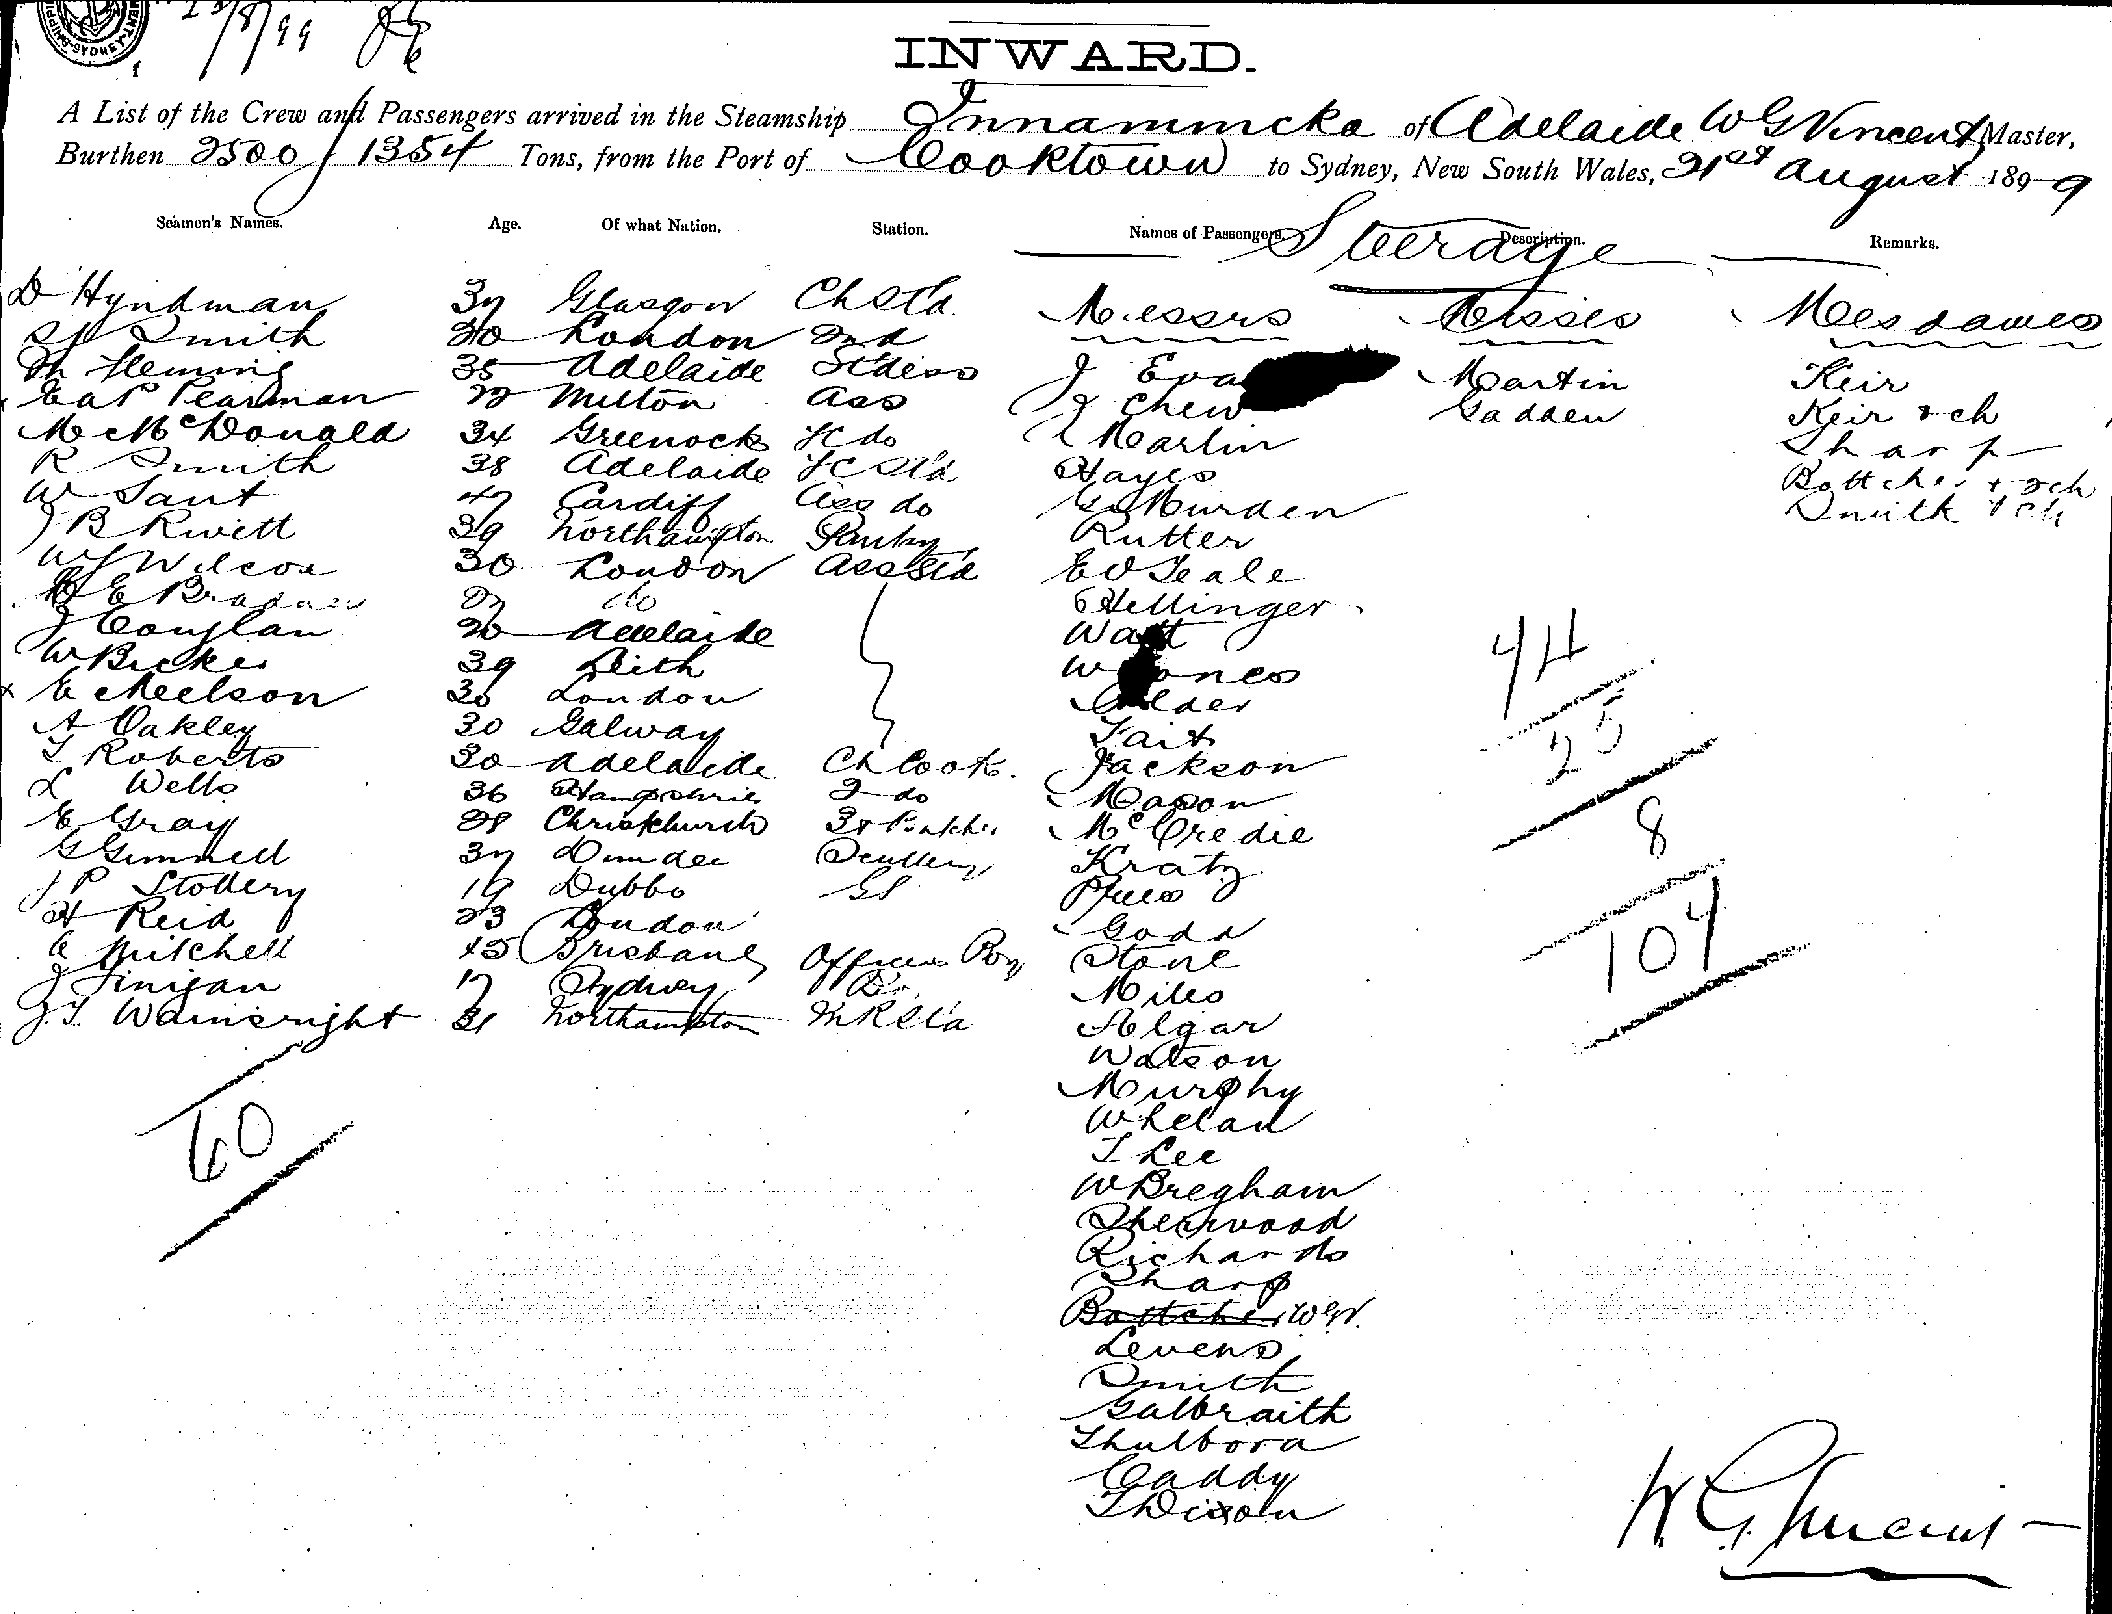 INWARD.
A List of the Crew and Passengers arrived in the Steamship Innamincka of Adelaide W G Vincent Master,
Burthen 2500 / 1354 Tons, from the Port of Cooktown to Sydney, New South Wales, 21st August 1899
Seamen's Names. Age. Of what Nation. Station. Names of Passengers. Description. Remarks.
Steerage
D Hyndman 37 Glasgow Ch Std.
Smith 20 London 2nd
Fleming 35 Adelaide St'dess
Pearman Milton Ass
McDonald 34 Greenock do
R Smith 38 Adelaide Std
W Sant 47 Cardiff Ass do
J B Rivett 39 Northampton Pantry
W J Wilcox 30 London Ass Std
E do
J Couglan 20 Adelaide
W 39 Leith
E Neelson London
A Oakley 30 Galway
T Roberts 30 Adelaide Ch Cook.
L Wells 36 2 do
E Gray 28 Christchurch 3
G Gimmell 37 Dundee Scullery
J P Stottery 19 Dubbo GS
H Reid 23 London
A Mitchell 45 Brisbane Officers Boy
J Finigan 17 Sydney Do
J.T. Wainwright 31 Northampton
60
Messrs Misses Mesdames
J Martin Keir
Chew Gadden Keir & ch
Martin Sharp
Hayes
G Murden Smith & ch
Rutter
E O Teale
Hellinger
Watt
W
Tait
Jackson
Mason
McCredie
Kratz
Godd
Stone
Miles
Algar
Watson
Murphy
Whelan
T Lee
W Bregham
Sherwood
Richards
Sharp
Bottcher W.G.V.
Levens
Smith
Galbraith
Thulbora
Caddy
T Dixon
44
25
8
104
W G Vincent